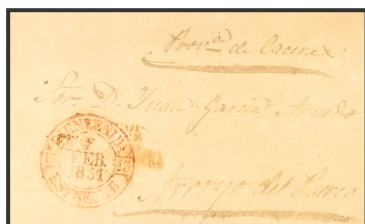 Prov.ª de Caceres
Sor. D. Juan Garcia
FEB.
1851
Arroyo del Puerco